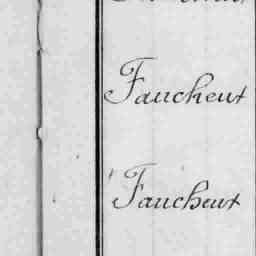 Faucheut
Faucheut